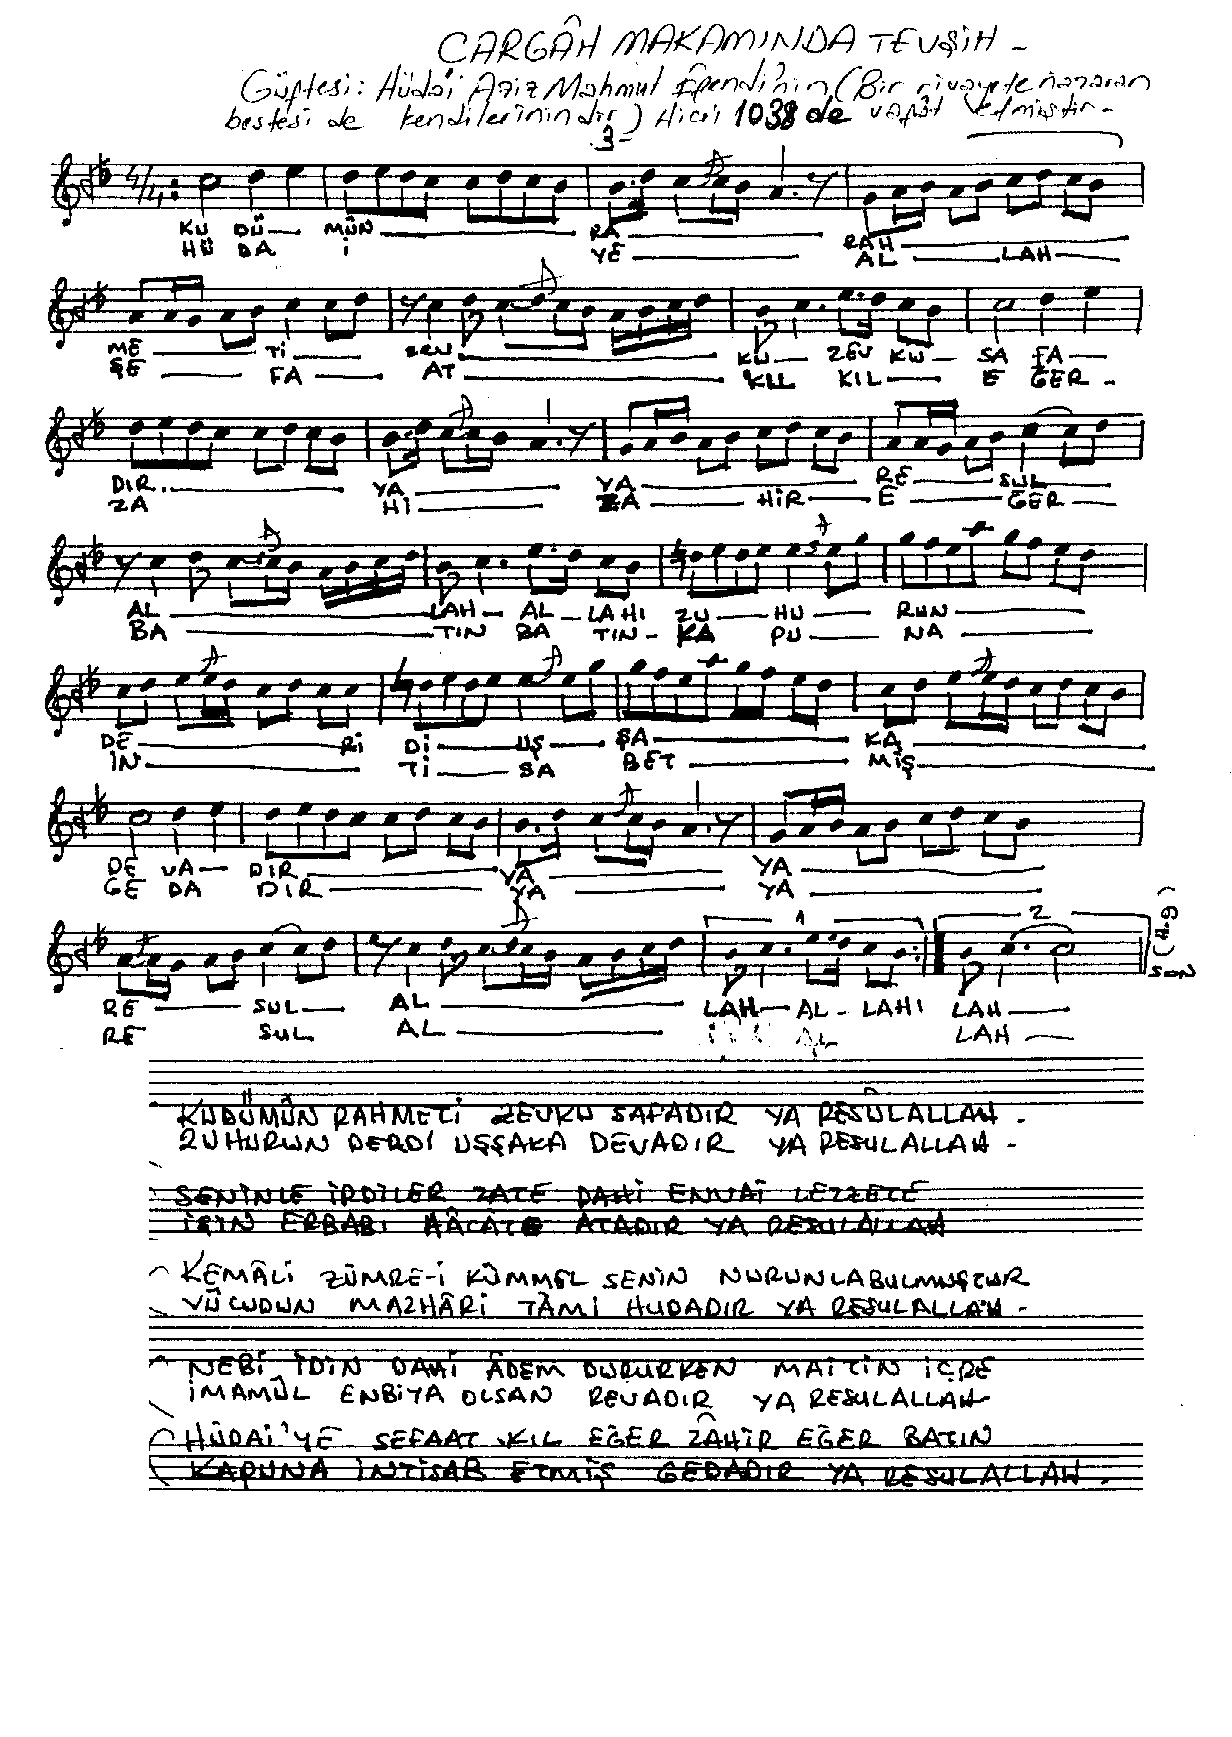 ÇARGÂH MAKAMINDA TEVŞİH -
Güftesi: Hüdâi Aziz Mahmut Efendi'nin (Bir rivayete nazaran
bestesi de kendilerinindir) Hicri 1038 de vefât etmiştir -
-3-
4/4
KU DÜ MÜN RA RAH
HÜ DA İ YE AL LAH
ME Tİ ZEV KU ZEV KU SA FA
ŞE FA AT KIL KIL E ĞER
DIR YA YA RE SUL
ZA Hİ ZA HİR E ĞER
AL LAH AL LAHI ZU HU RUN
BA TIN BA TIN KA PU NA
DE Rİ Dİ UŞ ŞA KA
İN Tİ SA BET MİŞ
DE VA DIR YA YA
GE DA DIR YA YA
1 2
RE SUL AL LAH AL LAHI LAH SON
RE SUL AL LAH
KUDÜMÜN RAHMETİ ZEVKU SAFADIR YA RESÛLALLAH -
ZUHURUN DERDİ UŞŞAKA DEVADIR YA RESULALLAH -
SENİNLE İRDİLER ZATE DAHİ ENVAİ LEZZETE
İÇİN ERBABI HÂCÂTE ATADIR YA RESULALLAH
KEMÂLİ ZÜMRE-İ KÜMMEL SENİN NURUNLA BULMUŞTUR
VÜCUDUN MAZHÂRİ TÂMİ HUDADIR YA RESULALLAH -
NEBİ İDİN DAHİ ÂDEM DURURKEN MAİ TİN İÇRE
İMAMÜL ENBİYA OLSAN REVADIR YA RESULALLAH
HÜDAİ'YE SEFAAT KIL EĞER ZÂHİR EĞER BATIN
KAPUNA İNTİSAB ETMİŞ GEDADIR YA RESULALLAH -